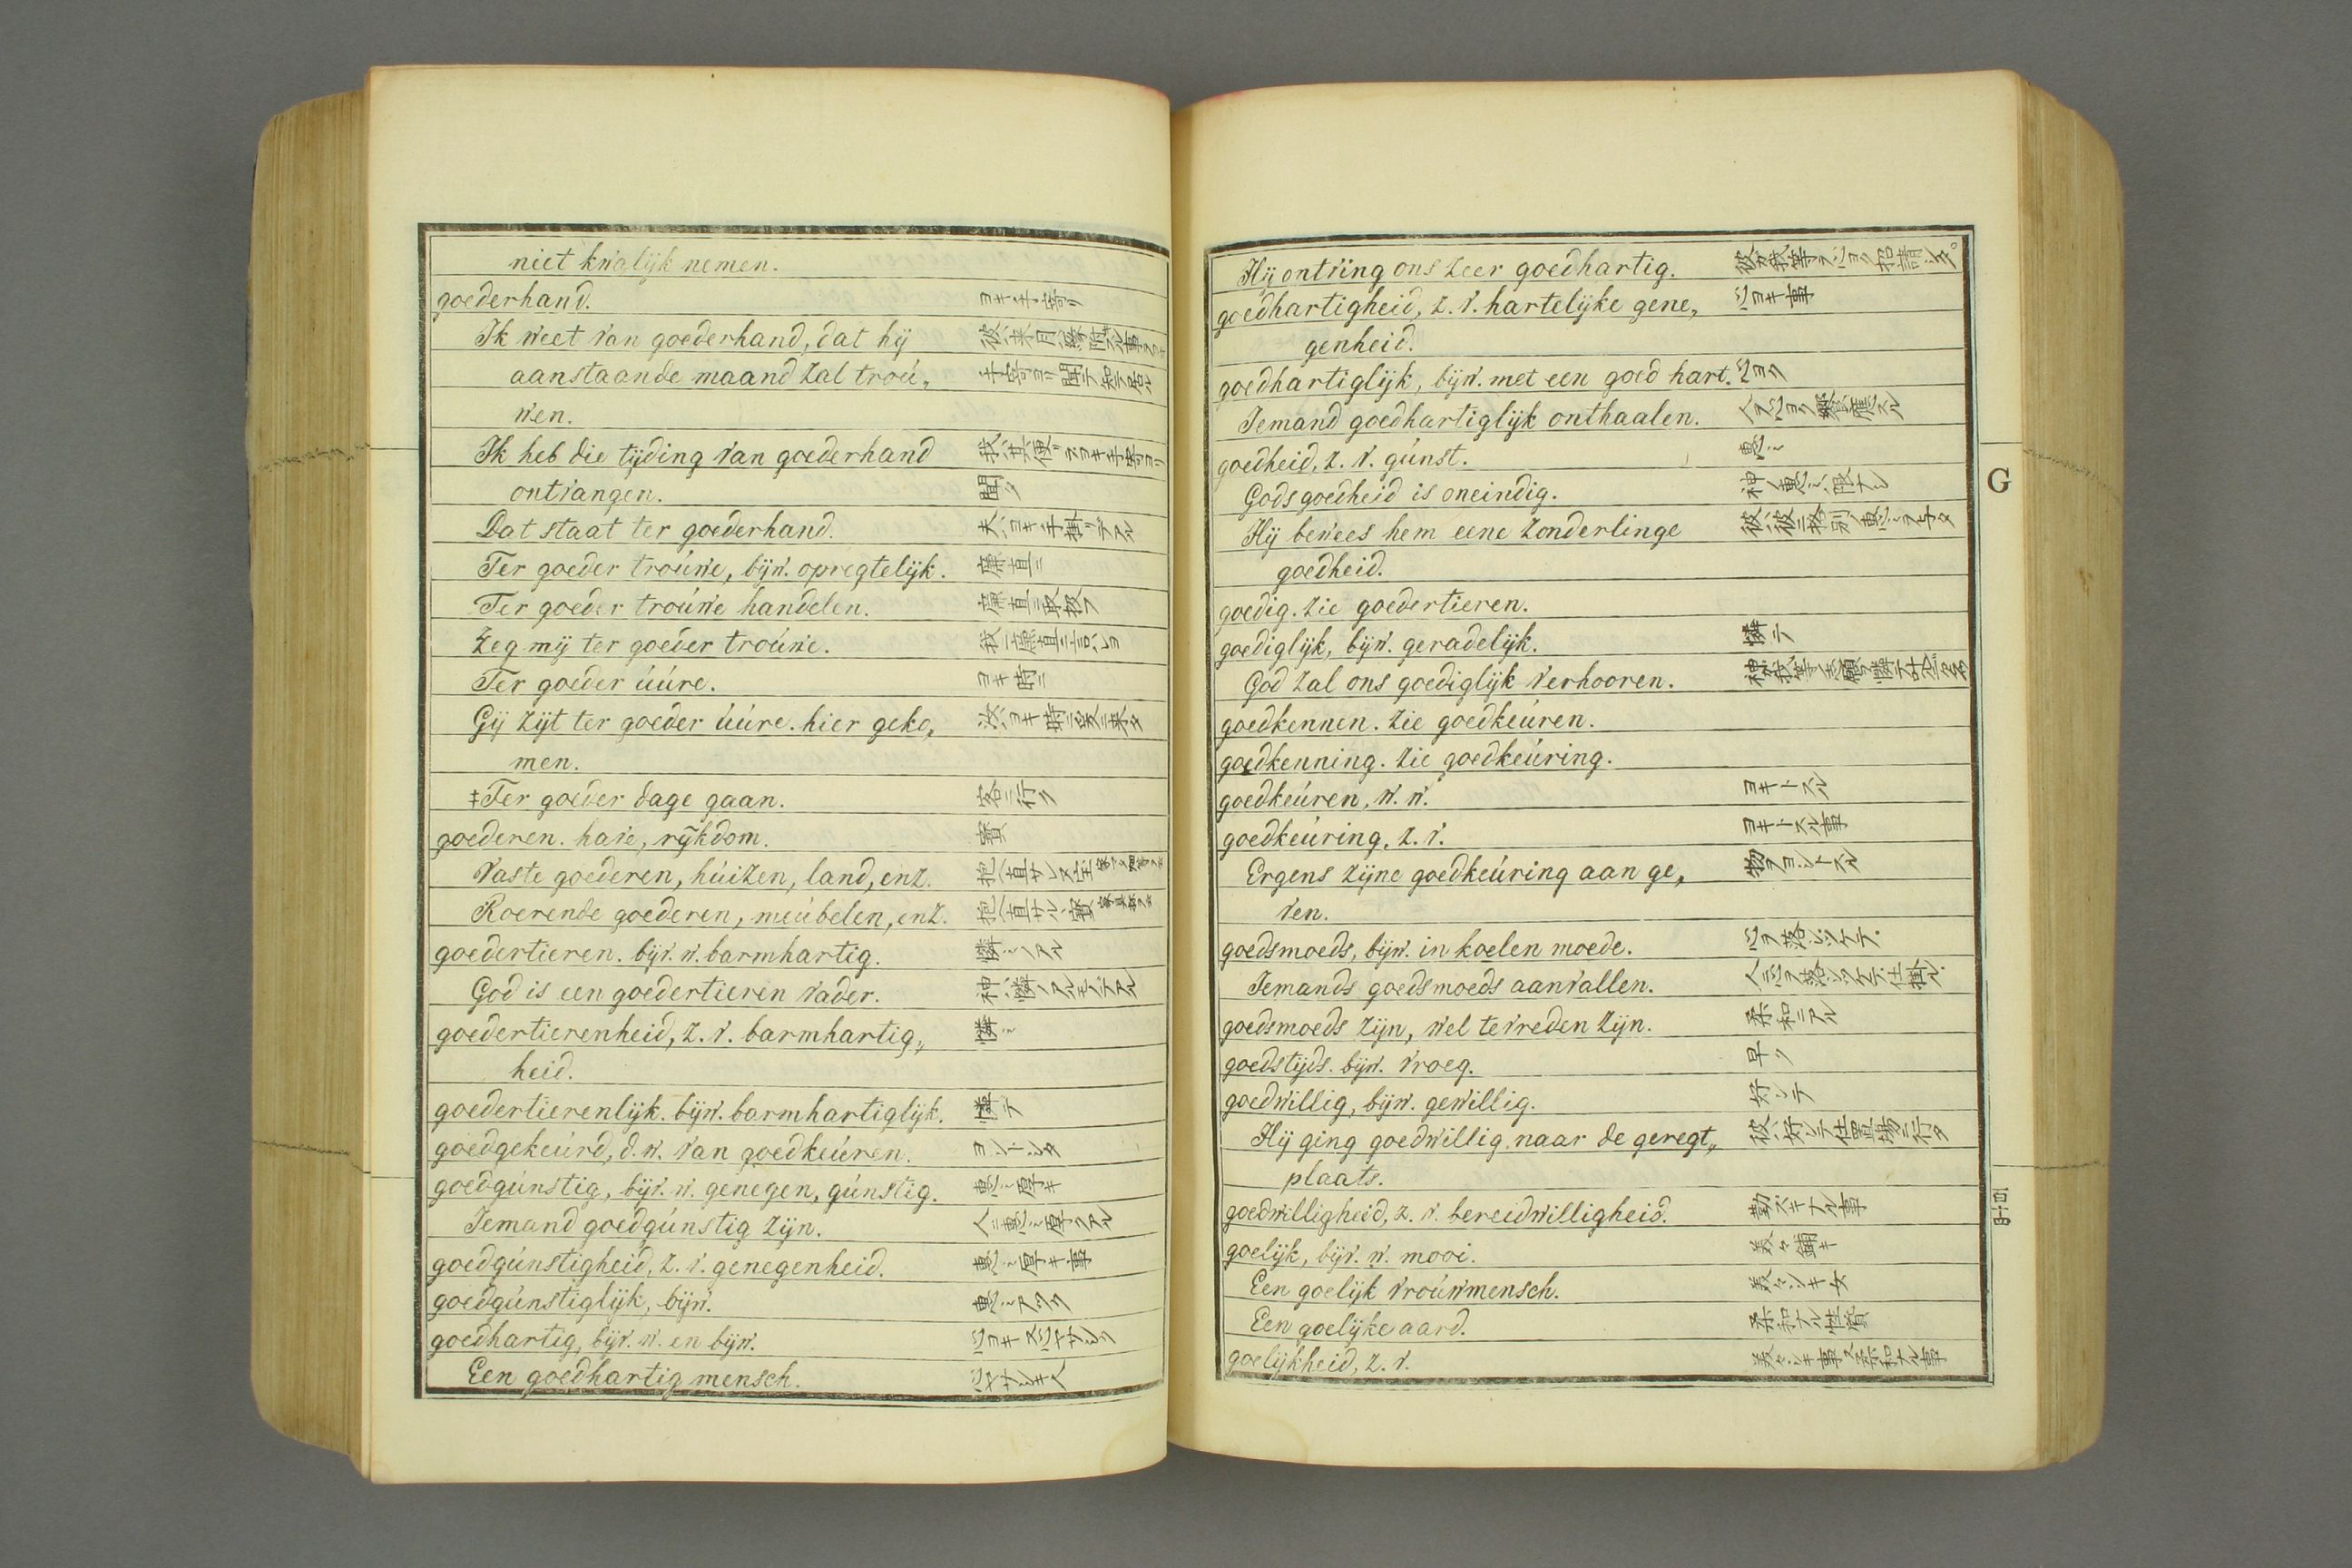 niet kwalijk nemen.
goederhand. ヨキ手寄リ
Ik weet van goederhand, dat hij 彼ハ来月
aanstaande maand zal trou„ 手寄ヨリ聞テ
wen.
Ik heb die tijding van goederhand 我ハ其便リヲヨキ手寄ヨリ
ontvangen. 聞ク
Dat staat ter goederhand. 夫ハヨキ手掛リデアル
Ter goeder trouwe, bijw. opregtelijk. 廉直ニ
Ter goeder trouwe handelen. 廉直ニ取扱フ
Zeg mij ter goeder trouwe. 我ニ廉直ニ言ヘヨ
Ter goeder uure. ヨキ時ニ
Gij zijt ter goeder uure. hier geko„ 汝ハヨキ時ニ爰ニ来タ
men.
‡Ter goeder dage gaan. 客ニ行ク
goederen. have, rijkdom. 寶
Vaste goederen, huizen, land, enz.
Roerende goederen, meubelen, enz.
goedertieren. bijv. w. barmhartig. 憐ミノアル
God is een goedertieren vader. 神ハ憐ノアルモノデアル
goedertierenheid, z. v. barmhartig„ 憐ミ
heid.
goedertierenlijk. bijw. barmhartiglijk. 憐テ
goedgekeurd, d. w. van goedkeuren. ヨシトシタ
goedgunstig, bijv. w. genegen, gunstig. 恵ミ厚キ
Iemand goedgunstig zijn. 人ニ恵ミ厚クアル
goedgunstigheid, z. v. genegenheid. 恵ミ厚キ事
goedgunstiglijk, bijw.恵ミアツク
goedhartig, bijv. w. en bijw. 心ヨキ又心ヤサシク
Een goedhartig mensch. 心ヤサシキ人
Hij ontving ons zeer goedhartig. 彼ガ我等ヲ心ヨク招請シタ。
goedhartigheid, z. v. hartelijke gene„ 心ヨキ事
genheid.
goedhartiglijk, bijw. met een goed hart. 心ヨク
Iemand goedhartiglijk onthaalen. 人ヲ心ヨク饗應スル
goedheid, z. v. gunst. 恵ミ
Gods goedheid is oneindig. 神ノ恵ミハ限ナシ
Hij bewees hem eene zonderlinge 彼ハ彼ニ格別ノ恵ミヲ与タ
goedheid.
goedig. zie goedertieren.
goediglijk, bijw. geradelijk. 憐テ
God zal ons goediglijk verhooren.
goedkennen. zie goedkeuren.
goedkenning. zie goedkeuring.
goedkeuren, w. w. ヨキトスル
goedkeuring, z. v. ヨキトスル事
Ergens zijne goedkeuring aan ge„ 物ヲヨシトスル
ven.
goedsmoeds, bijw. in koelen moede. 心ヲ落シツケテ.
Iemands goedsmoeds aanvallen. 人ニ心ヲ落シツケテ仕掛ル.
goedsmoeds zijn, wel tevreden zijn. 柔和ニアル
goedstijds. bijw. vroeg. 早ク
goedwillig, bijw. gewillig. 好シテ
Hij ging goedwillig naar de geregt„ 彼ハ好シテ仕置場ニ行タ
plaats.
goedwilligheid, z. v. bereidwilligheid. 勤ズキナル事
goelijk, bijv. w. mooi.
Een goelijk vrouwmensch. 美々シキ女
Een goelijke aard. 柔和ナル性質
goelijkheid, z. v. 美々シキ事又柔和ナル事
G